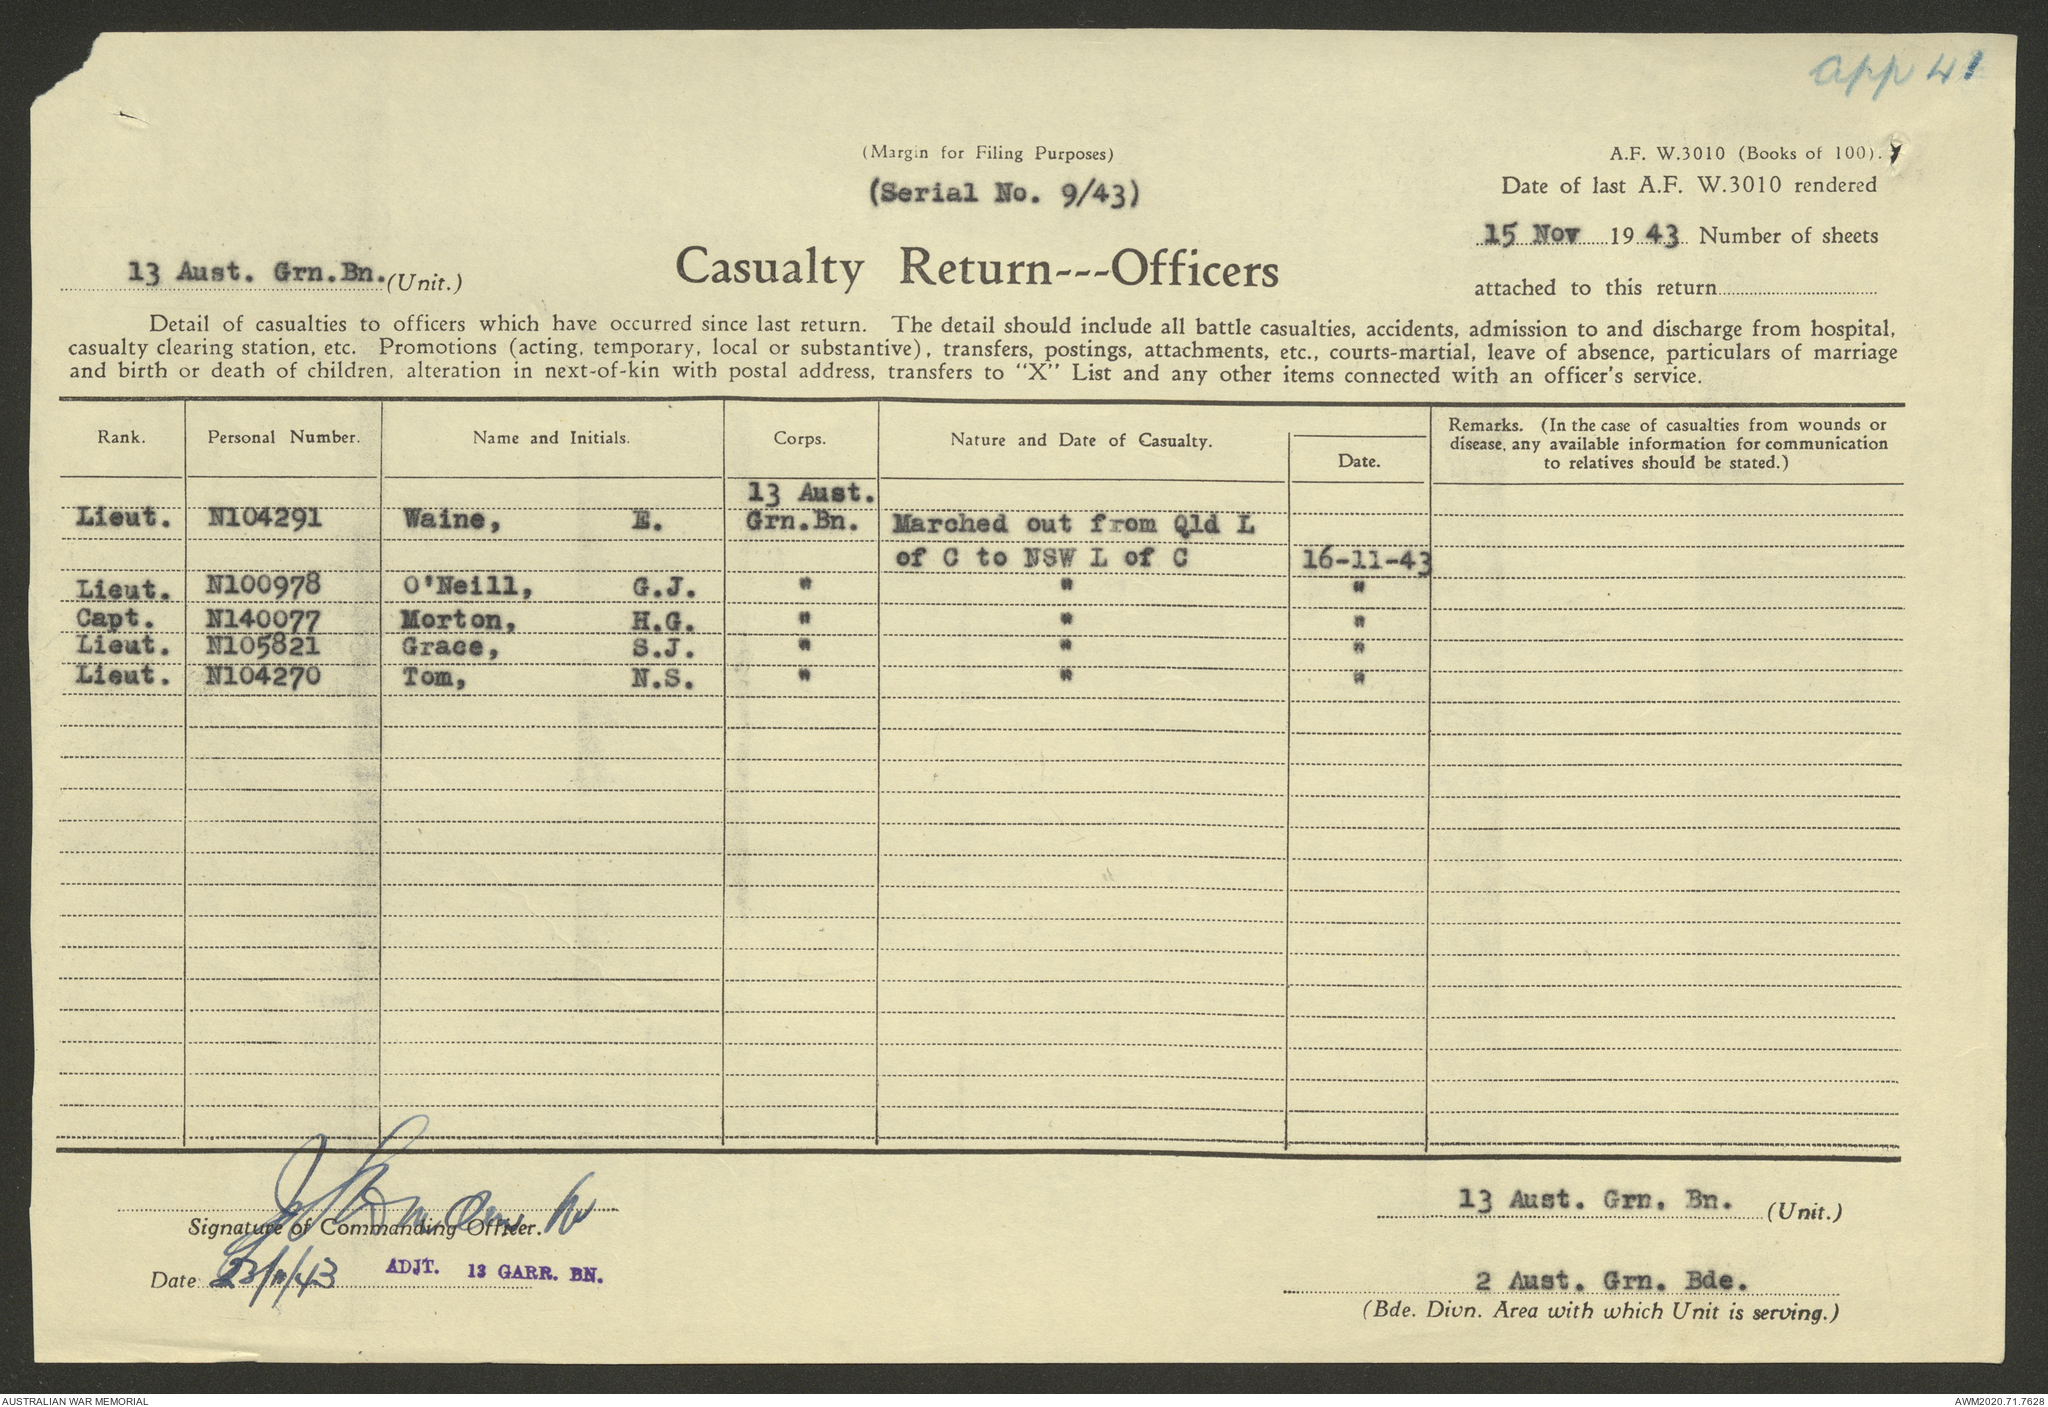 app 41
(Margin for Filing Purposes)
A.F. W.3010 (Books of 100).
(Serial No. 9/43)
Date of last A.F. W.3010 rendered
15 Nov 1943 Number of sheets
attached to this return
13 Aust. Grn.Bn. (Unit.)
Casualty Return---Officers
Detail of casualties to officers which have occurred since last return. The detail should include all battle casualties, accidents, admission to and discharge from hospital,
casualty clearing station, etc. Promotions (acting, temporary, local or substantive), transfers, postings, attachments, etc., courts-martial, leave of absence, particulars of marriage
and birth or death of children, alteration in next-of-kin with postal address, transfers to "X" List and any other items connected with an officer's service.
Rank. Personal Number. Name and Initials. Corps. Nature and Date of Casualty. Date.
Remarks. (In the case of casualties from wounds or
disease, any available information for communication
to relatives should be stated.)
13 Aust.
Lieut. N104291 Waine, E. Grn.Bn. Marched out from Qld L
of C to NSW L of C 16-11-43
Lieut. N100978 O'Neill, G.J. " " "
Capt. N140077 Morton, H.G. " " "
Lieut. N105821 Grace, S.J. " " "
Lieut. N104270 Tom, N.S. " " "
Signature of Commanding Officer.
Date 23/11/43 ADJT. 13 GARR. BN.
13 Aust. Grn. Bn. (Unit.)
2 Aust. Grn. Bde.
(Bde. Divn. Area with which Unit is serving.)
AUSTRALIAN WAR MEMORIAL
AWM2020.71.7628